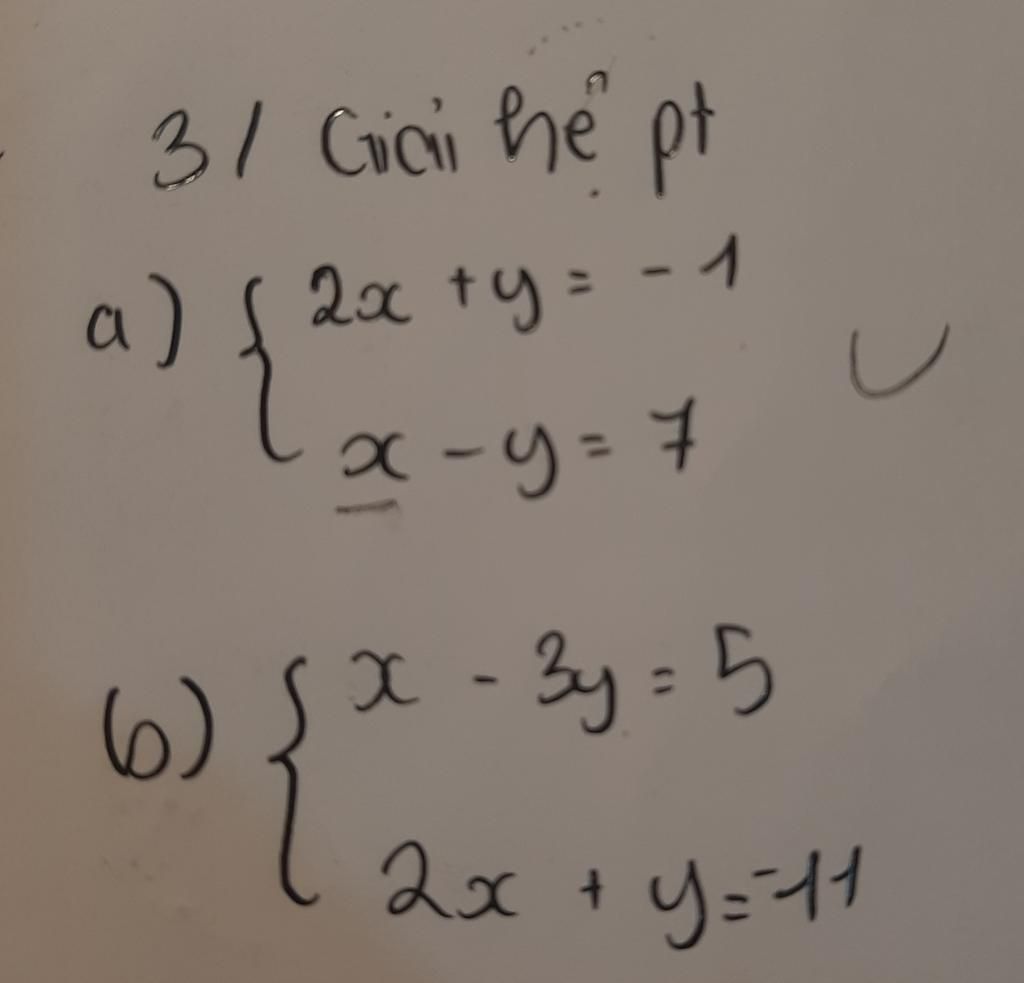 3/ Giải hệ pt
a) { 2x + y = -1
x - y = 7
b) { x - 3y = 5
2x + y = -11